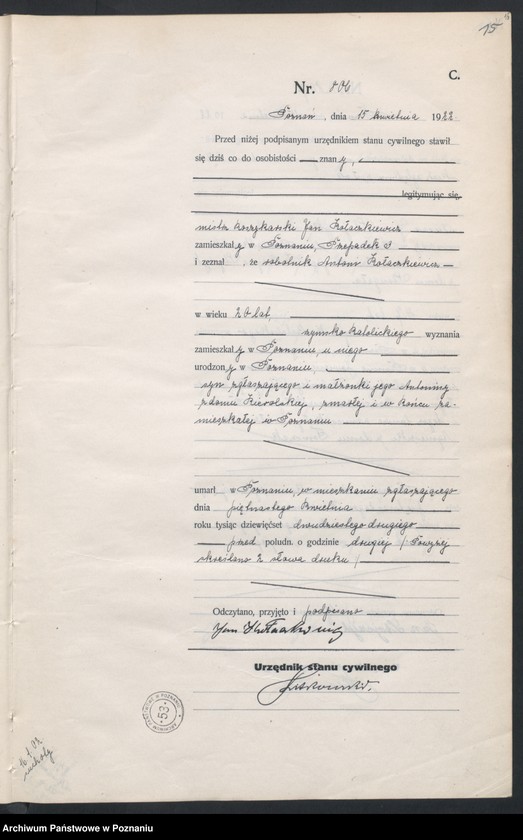 15
C.
Nr. 806
Poznań, dnia 15 kwietnia 1922
Przed niżej podpisanym urzędnikiem stanu cywilnego stawił
się dziś co do osobistości znany,
legitymując się,
mistrz koszykarski Jan Kołaczkiewicz
zamieszkały w Poznaniu, 3
i zeznał, że robotnik Antoni Kołaczkiewicz
w wieku 20 lat,
rzymsko katolickiego wyznania
zamieszkały w Poznaniu, u niego
urodzony w Poznaniu,
syn zgłaszającego i małżonki jego Antoniny
z domu, zmarłej i w końcu za-
mieszkałej w Poznaniu
umarł w Poznaniu, w mieszkaniu zgłaszającego
dnia piętnastego kwietnia
roku tysiąc dziewięćset dwudziestego drugiego
przed połudn. o godzinie drugiej / Powyżej
skreślono 2 słowa druku /
Odczytano, przyjęto i podpisano
Jan
Urzędnik stanu cywilnego
53
Archiwum Państwowe w Poznaniu